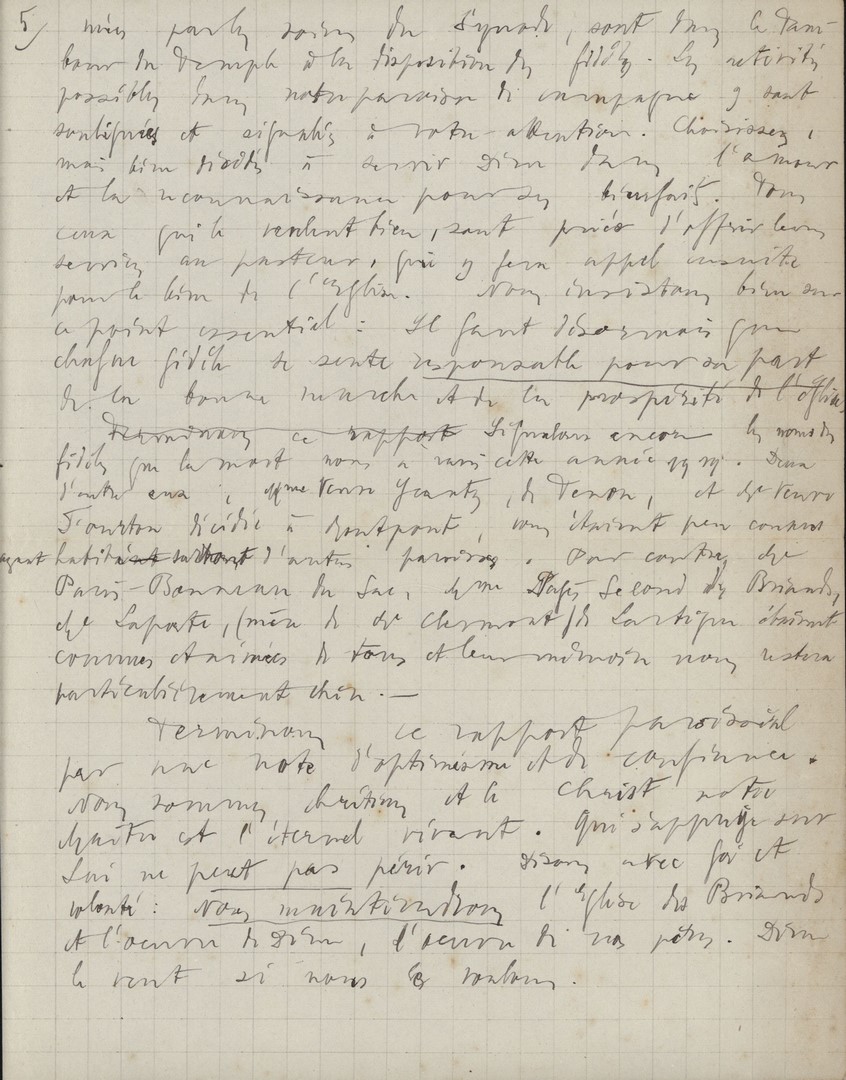 5/ mées par les soins du Synode, sont dans le Tam-
bour du Temple à la disposition des fidèles. Les activités
possibles dans notre paroisse de campagne y sont
soulignées et signalées à votre attention. Choisissez,
mais bien décidés à servir Dieu dans l'amour
et la reconnaissance pour ses bienfaits. Tous
ceux qui le veulent bien, sont priés d'offrir leurs
services au pasteur, qui y fera appel ensuite
pour le bien de l'Eglise. Nous insistons bien sur
ce point essentiel : Il faut désormais que
chaque fidèle se sente responsable pour sa part
de la bonne marche et de la prospérité de l'Eglise.
Terminons ce rapport Signalons encore les noms des
fidèles que la mort nous a ravis cette année. Deux
d'entre eux, Mme Veuve Yeanty, de Tenon, et Me Veuve
Tourton décédée à Montpont, vous étaient peu connus
ayant habité surtout d'autres paroisses. Par contre Me
Paris-Bonneau du Sac, Mme Pagès Second des Briands,
Me Laporte, (mère de Me Clermont) de Lartigue étaient
connues et aimées de tous et leur mémoire nous restera
particulièrement chère. —
Terminons ce rapport paroissial
par une note d'optimisme et de confiance.
Nous sommes chrétiens et le Christ notre
Maître est l'éternel vivant. Qui s'appuye sur
Lui ne peut pas périr. Disons avec foi et
volonté : Nous maintiendrons l'Eglise des Briands
et l'oeuvre de Dieu, l'oeuvre de nos pères. Dieu
le veut si nous le voulons.